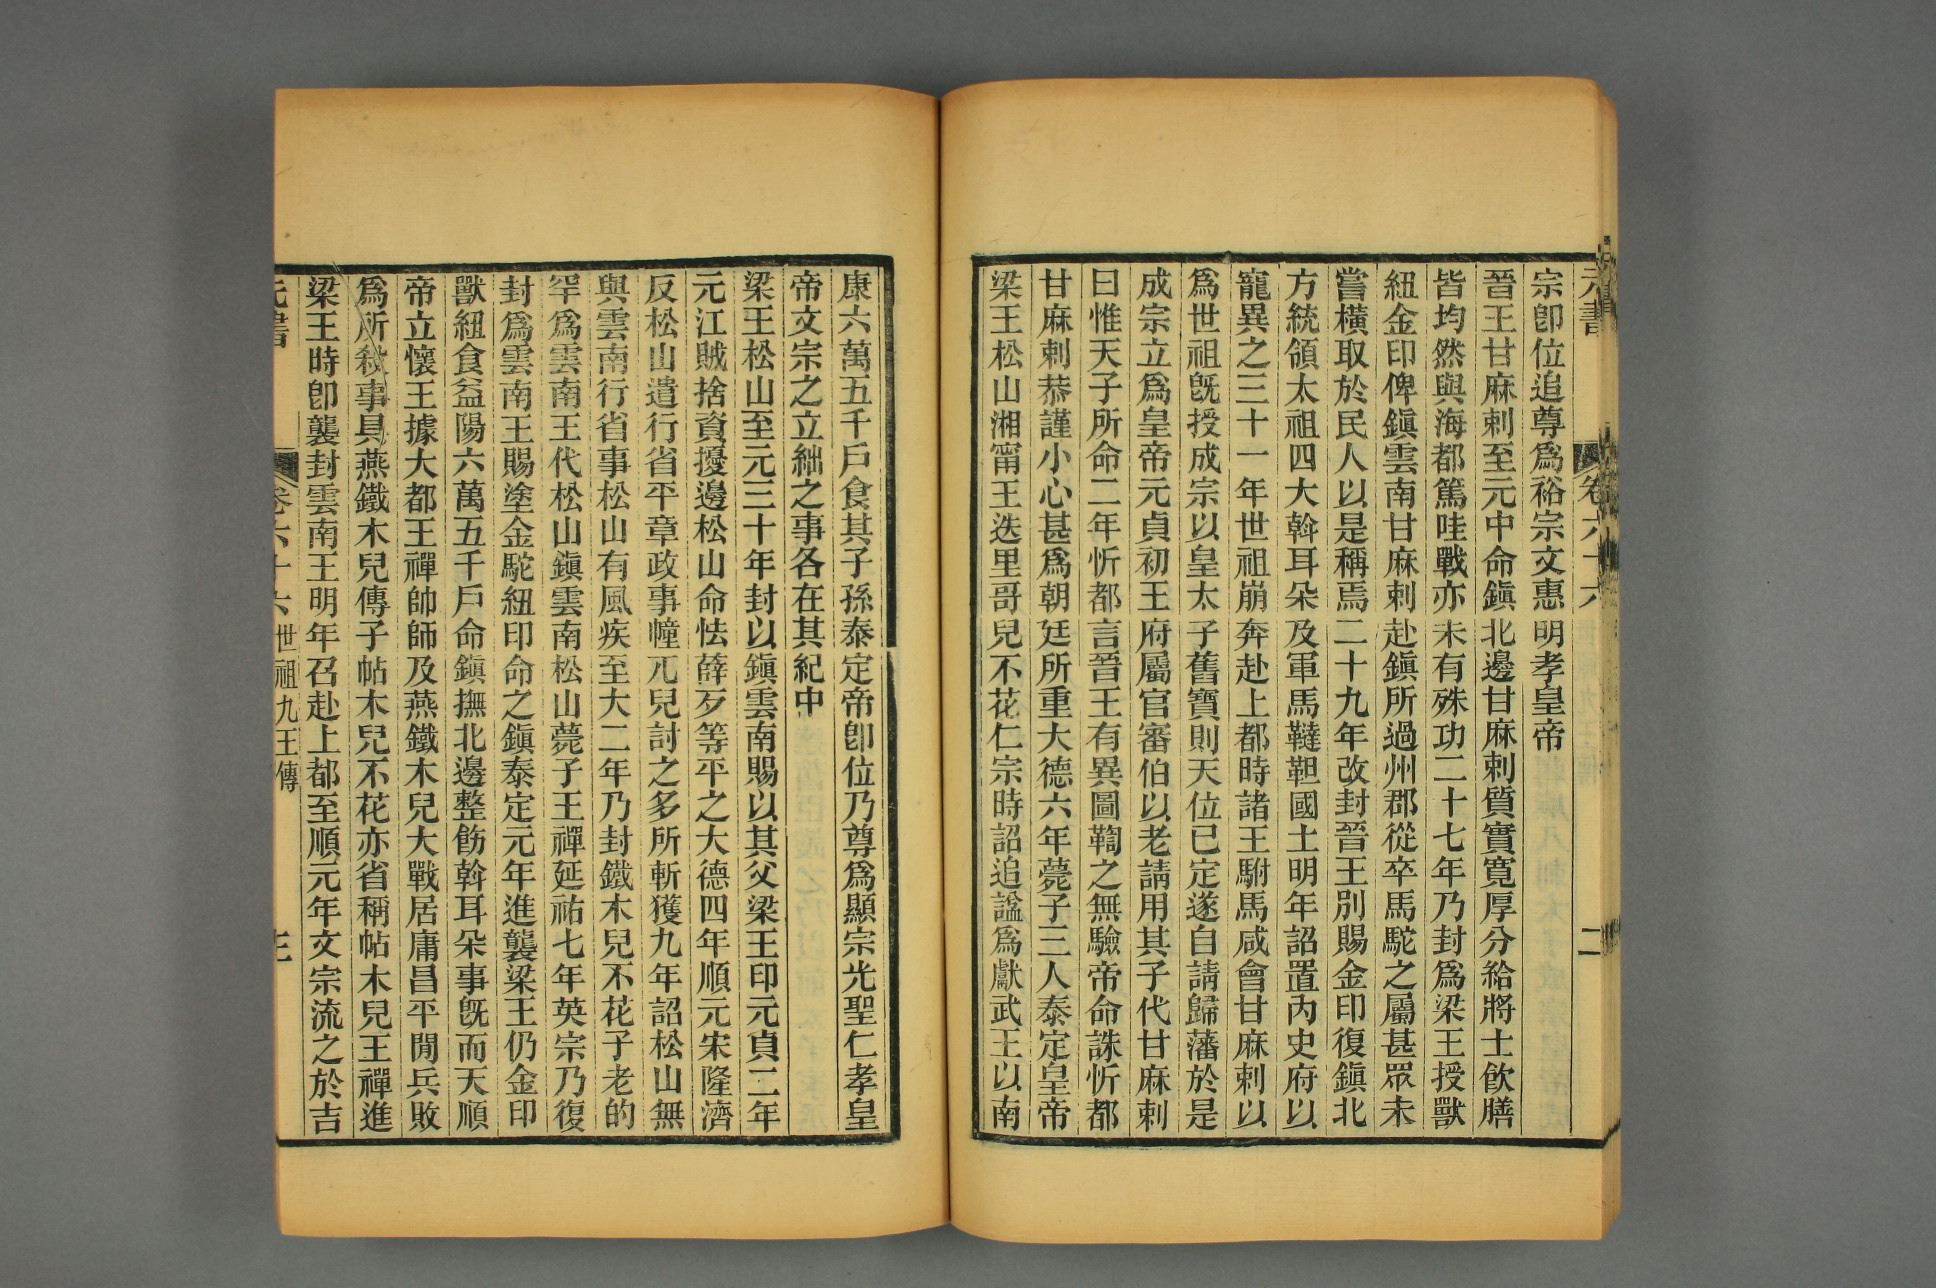 元書
卷六十六
二
宗卽位追尊爲裕宗文惠明孝皇帝
晉王甘麻剌至元中命鎭北邊甘麻剌質實寬厚分給將士飮膳
皆均然與海都篤哇戰亦未有殊功二十七年乃封爲梁王授獸
紐金印俾鎭雲南甘麻剌赴鎭所過州郡從卒馬駝之屬甚眾未
嘗橫取於民人以是稱焉二十九年改封晉王別賜金印復鎭北
方統領太祖四大斡耳朵及軍馬韃靼國土明年詔置內史府以
寵異之三十一年世祖崩奔赴上都時諸王駙馬咸會甘麻剌以
爲世祖旣授成宗以皇太子舊寶則天位已定遂自請歸藩於是
成宗立爲皇帝元貞初王府屬官審伯以老請用其子代甘麻剌
曰惟天子所命二年忻都言晉王有異圖鞫之無驗帝命誅忻都
甘麻剌恭謹小心甚爲朝廷所重大德六年薨子三人泰定皇帝
梁王松山湘甯王迭里哥兒不花仁宗時詔追謚爲獻武王以南
康六萬五千戶食其子孫泰定帝卽位乃尊爲顯宗光聖仁孝皇
帝文宗之立絀之事各在其紀中
梁王松山至元三十年封以鎭雲南賜以其父梁王印元貞二年
元江賊捨資擾邊松山命怯薛歹等平之大德四年順元宋隆濟
反松山遣行省平章政事幢兀兒討之多所斬獲九年詔松山無
與雲南行省事松山有風疾至大二年乃封鐵木兒不花子老的
罕爲雲南王代松山鎭雲南松山薨子王禪延祐七年英宗乃復
封爲雲南王賜塗金駝紐印命之鎭泰定元年進襲梁王仍金印
獸紐食益陽六萬五千戶命鎭撫北邊整飭斡耳朵事旣而天順
帝立懷王據大都王禪帥師及燕鐵木兒大戰居庸昌平閒兵敗
爲所殺事具燕鐵木兒傳子帖木兒不花亦省稱帖木兒王禪進
梁王時卽襲封雲南王明年召赴上都至順元年文宗流之於吉
元書
卷六十六
世祖九王傳